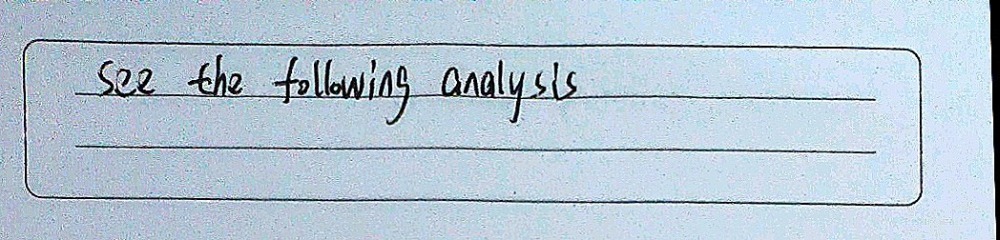 See the following analysis